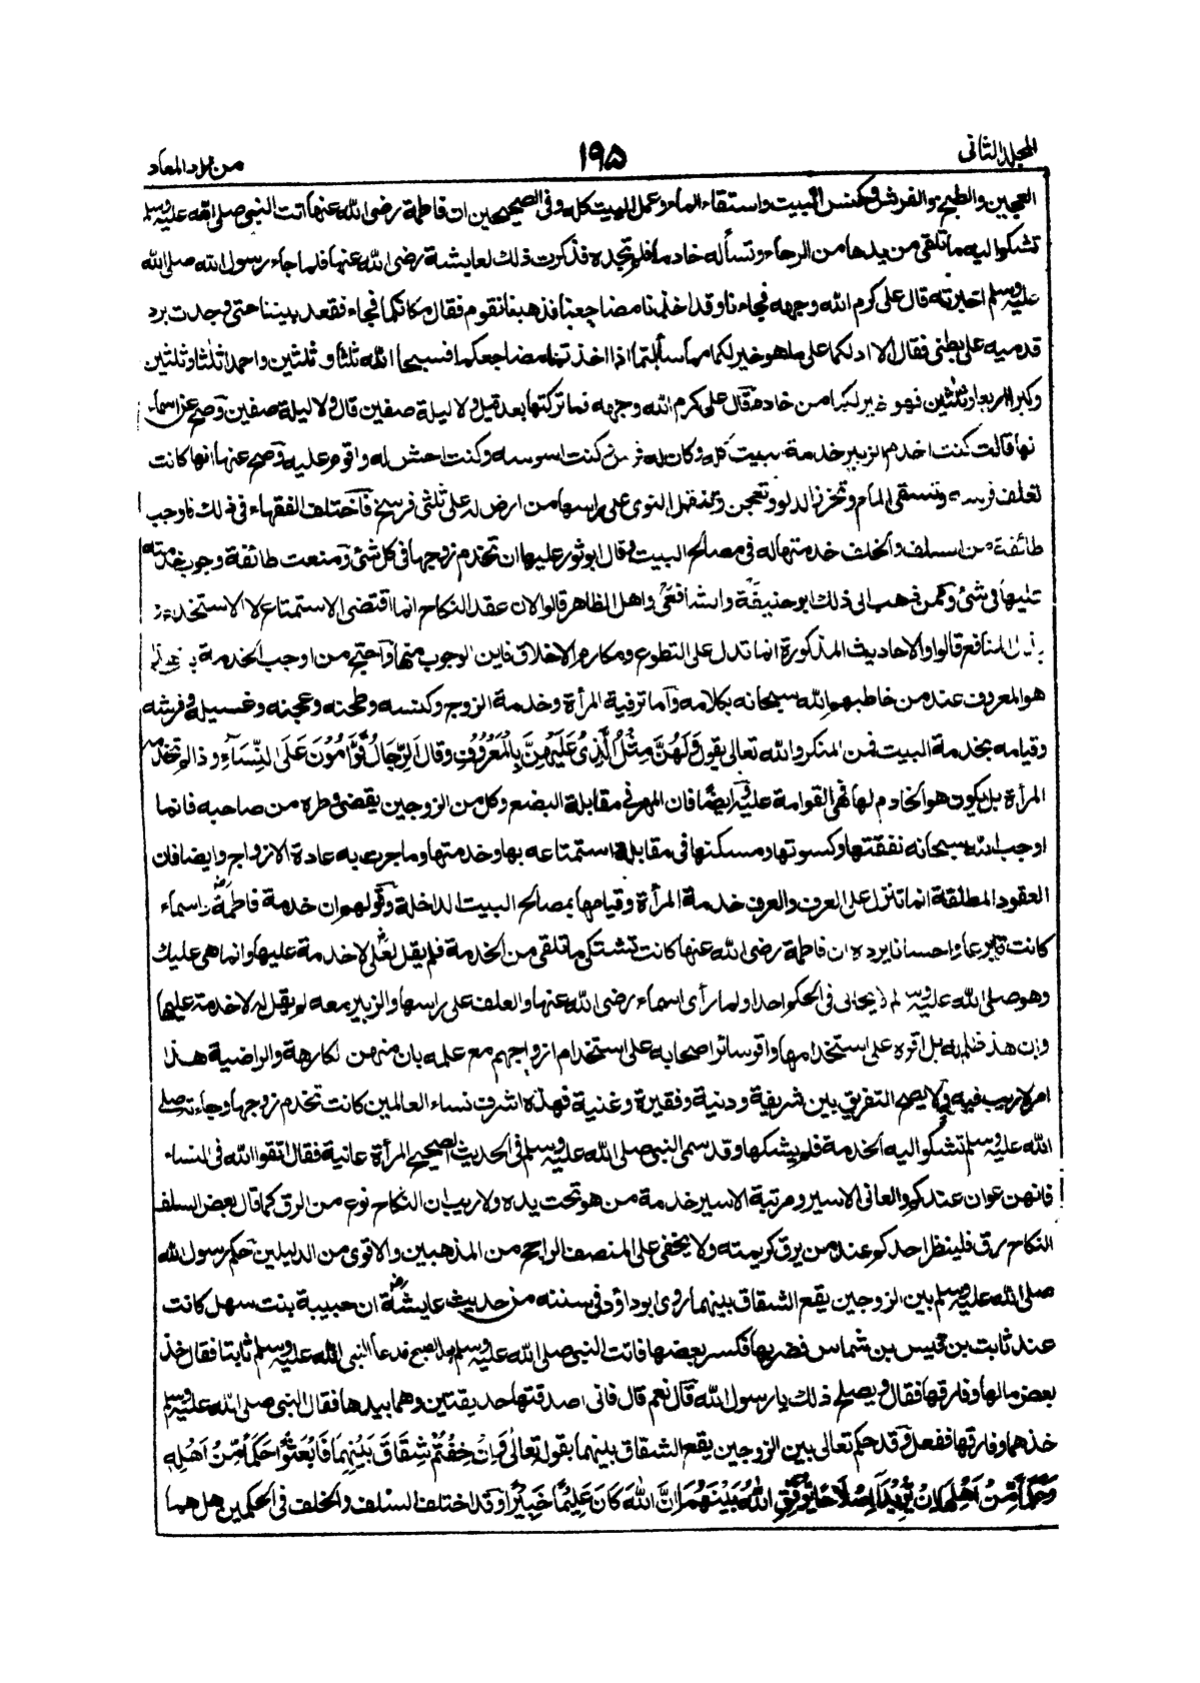 المجلد الثانى
١٩٥
من زاد المعاد
العجين والطبخ والفرش وكنس البيت واستقاء الماء وعمل البيت كله وفى الصحيحين ان فاطمة رضى الله عنها اتت النبى صلى الله عليه وسلم
تشكوا اليه ما تلقى من يدها من الرحاء وتسأله خادما فلم تجده فذكرت ذلك لعايشة رضى الله عنها فلما جاء رسول الله صلى الله
عليه وسلم اخبرته قال على كرم الله وجهه فجاءنا وقد اخذنا مضاجعنا فذهبنا نقوم فقال مكانكما فجاء فقعد بيننا حتى وجدت برد
قدميه على بطنى فقال الا ادلكما على ما هو خير لكما مما سألتما اذا اخذتما مضاجعكما فسبحا الله ثلثا و ثلثين واحمدا ثلثا وثلثين
وكبرا اربعا وثلثين فهو خير لكما من خادم قال على كرم الله وجهه فما تركتها بعد قيل ولا ليلة صفين قال ولا ليلة صفين وصح عن اسماء
انها قالت كنت اخدم الزبير خدمة البيت كله وكان له فرس وكنت اسوسه وكنت احتش له واقوم عليه وصح عنها انها كانت
تعلف فرسه وتسقى الماء وتخرز الدلو وتعجن وتنقل النوى على راسها من ارض له على ثلثى فرسخ فاختلف الفقهاء فى ذلك فاوجب
طائفة من السلف والخلف خدمتها له فى مصالح البيت وقال ابو ثور عليها ان تخدم زوجها فى كل شئ ومنعت طائفة وجوب خدمته
عليها فى شئ وممن ذهب الى ذلك ابو حنيفة والشافعى واهل الظاهر قالوا لان عقد النكاح انما اقتضى الاستمتاع لا الاستخدام و
بذل المنافع قالوا والاحاديث المذكورة انما تدل على التطوع ومكارم الاخلاق فاين الوجوب منها واحتج من اوجب الخدمة بان هذا
هو المعروف عند من خاطبهم الله سبحانه بكلامه واما ترفية المرأة وخدمة الزوج وكنسه وطحنه وعجنه وغسيله وفرشه
وقيامه بخدمة البيت فمن المنكر والله تعالى يقول وَلَهُنَّ مِثْلُ الَّذِى عَلَيْهِنَّ بِالْمَعْرُوْفِ وقال اَلرِّجَالُ قَوَّامُوْنَ عَلَى النِّسَآءِ واذا لم تخدمه
المرأة بل يكون هو الخادم لها فهى القوامة عليه وايضا فان المهر فى مقابلة البضع وكل من الزوجين يقضى وطره من صاحبه فانما
اوجب الله سبحانه نفقتها وكسوتها ومسكنها فى مقابلة استمتاعه بها وخدمتها وما جرى به عادة الازواج وايضا فان
العقود المطلقة انما تنزل على العرف والعرف خدمة المرأة وقيامها بمصالح البيت الداخلة وقولهم ان خدمة فاطمة واسماء
كانت تبرعا واحسانا يرده ان فاطمة رضى الله عنها كانت تشتكى ما تلقى من الخدمة فلم يقل لعلى لا خدمة عليها وانما هى عليك
وهو صلى الله عليه وسلم لا يحابى فى الحكم احدا ولما رأى اسماء رضى الله عنها والعلف على راسها والزبير معه لم يقل له لا خدمة عليها
وان هذا ظلم لها بل اقره على استخدامها واقر سائر اصحابه على استخدام ازواجهم مع علمه بان منهن الكارهة والراضية هذا
امر لا ريب فيه ولا يصح التفريق بين شريفة ودنية وفقيرة وغنية فهذه اشرف نساء العالمين كانت تخدم زوجها وجاءته صلى
الله عليه وسلم تشكو اليه الخدمة فلم يشكها وقد سمى النبى صلى الله عليه وسلم فى الحديث الصحيح المرأة عانية فقال اتقوا الله فى النساء
فانهن عوان عندكم والعانى الاسير ومرتبة الاسير خدمة من هو تحت يده ولا ريب ان النكاح نوع من الرق كما قال بعض السلف
النكاح رق فلينظر احدكم عند من يرق كريمته ولا يخفى على المنصف الراجح من المذهبين والاقوى من الدليلين حكم رسول الله
صلى الله عليه وسلم بين الزوجين يقع الشقاق بينهما روى ابو داؤد فى سننه من حديث عايشة ان حبيبة بنت سهل كانت
عند ثابت بن قيس بن شماس فضربها فكسر بعضها فاتت النبى صلى الله عليه وسلم بعد الصبح فدعا النبى صلى الله عليه وسلم ثابتا فقال خذ
بعض مالها وفارقها فقال ويصلح ذلك يا رسول الله قال نعم قال فانى اصدقتها حديقتين وهما بيدها فقال النبى صلى الله عليه وسلم
خذهما وفارقها ففعل وقد حكم تعالى بين الزوجين يقع الشقاق بينهما بقوله تعالى وَاِنْ خِفْتُمْ شِقَاقَ بَيْنِهِمَا فَابْعَثُوْا حَكَمًا مِّنْ اَهْلِهٖ
وَحَكَمًا مِّنْ اَهْلِهَا اِنْ يُّرِيْدَآ اِصْلَاحًا يُّوَفِّقِ اللّٰهُ بَيْنَهُمَا اِنَّ اللّٰهَ كَانَ عَلِيْمًا خَبِيْرًا وقد اختلف السلف والخلف فى الحكمين هل هما